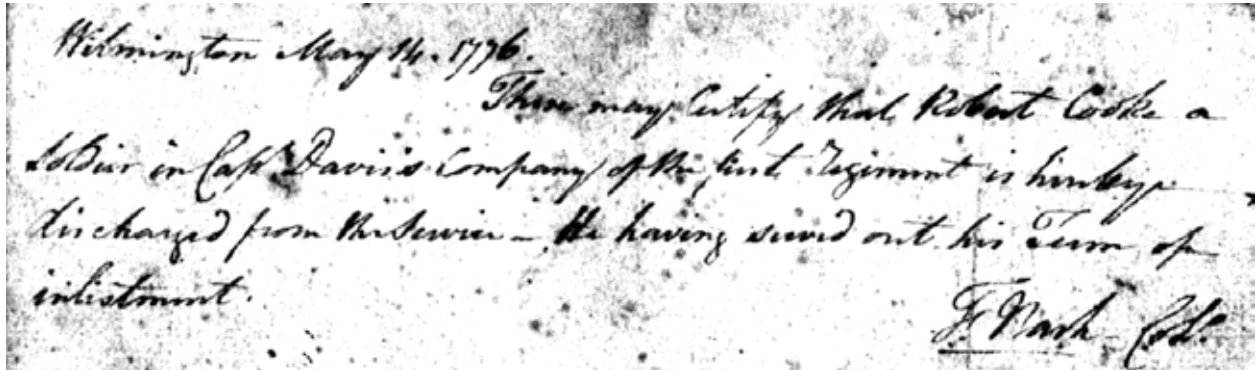 Wilmington May 14. 1776.
These may Certify that Robert Cooke a
Soldier in Capt. Davis's Company of the first Regiment is hereby
discharged from the Service – He having served out his Term of
inlistment.
F. Nash Col.